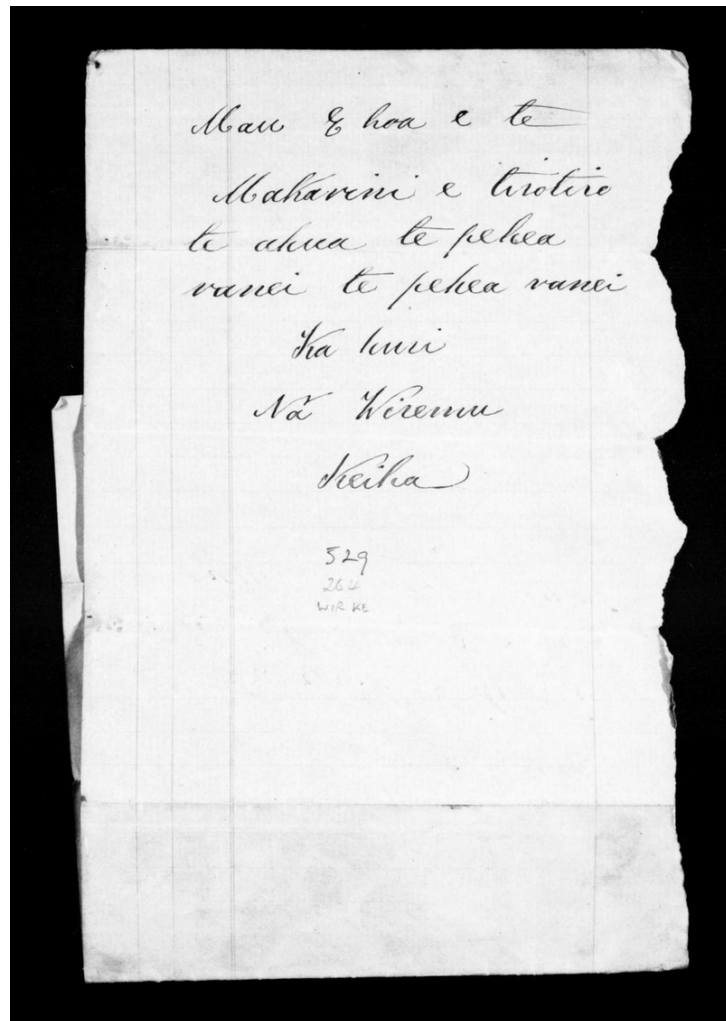 Mau E hoa e te
Makarini e tirotiro
te ahua te pehea
ranei te pehea ranei
Ka huri
Na Wiremu
Keiha
529
264
WIR KE